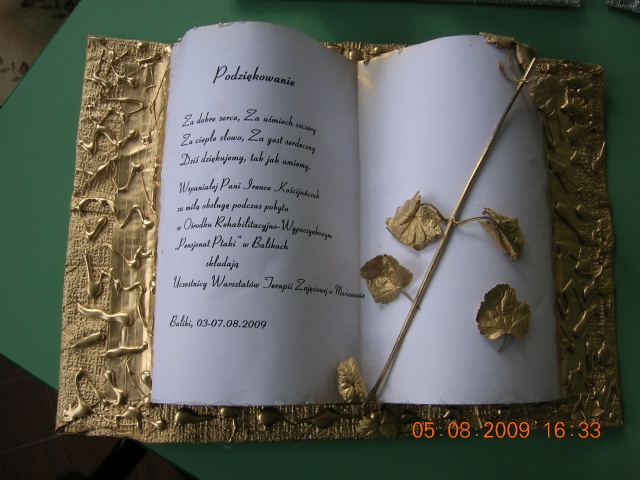 Podziękowanie
Za dobre serce, Za uśmiech szczery
Za ciepłe słowo, Za gest serdeczny
Dziś dziękujemy, tak jak umiemy.
Wspaniałej Pani Irence Kościjańczuk
za miłą obsługę podczas pobytu
w Ośrodku Rehabilitacyjno-Wypoczynkowym
„Pensjonat Ptaki" w Balikach
składają
Uczestnicy Warsztatów Terapii Zajęciowej w Marianowie
Baliki, 03-07.08.2009
05.08.2009 16:33